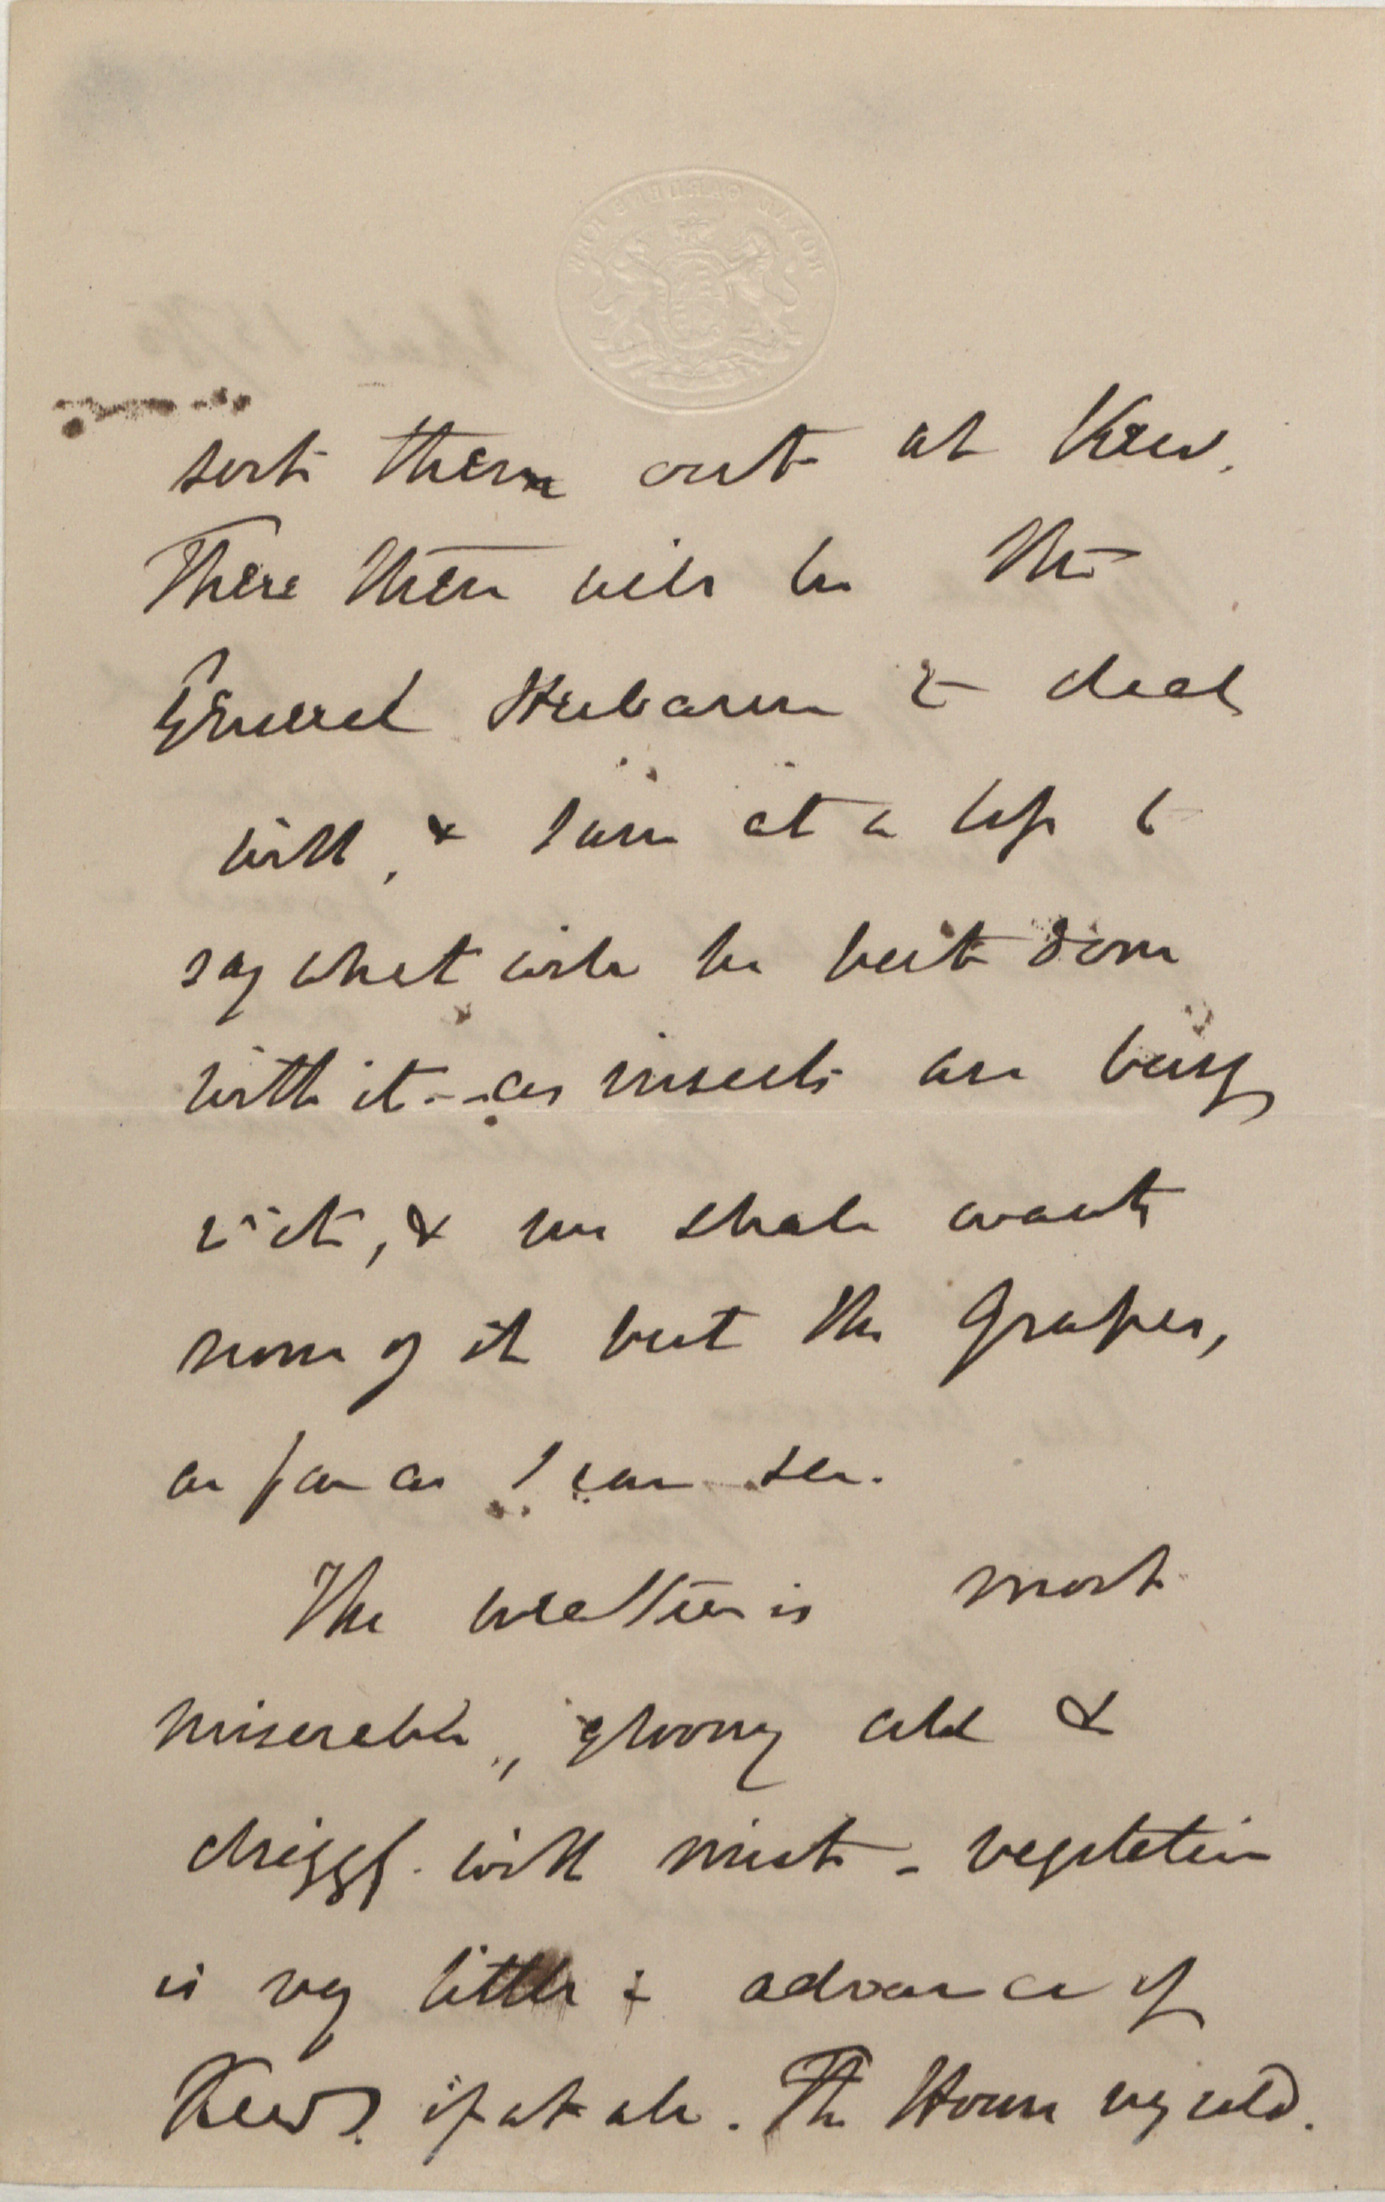 sort them out at Kew.
There then will be the
General Herbarm to deal
with, & I am at a loss to
say what will be best done
with it -- as insects are busy
in it, & we shall want
none of it but the Grapes,
as far as I can see.
The weather is most
miserable, gloomy cold &
drizzly with mist - vegetation
is very little in advance of
Kew? if at all. The House very cold.